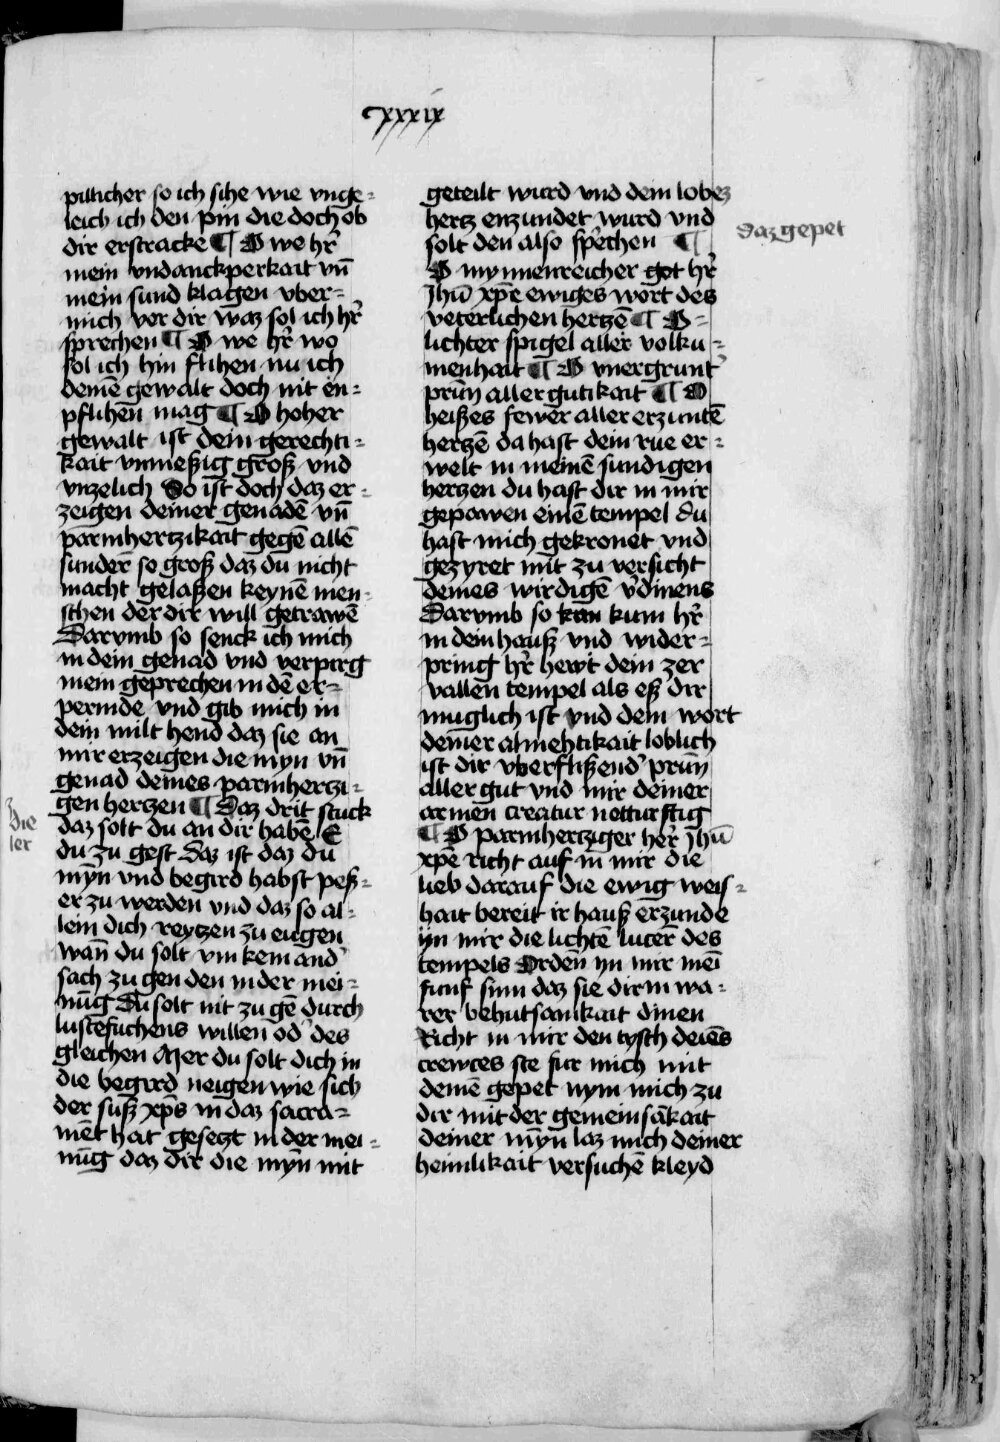 xxxix
pillicher so ich sihe wie vnge=
leich ich den pin die doch ob
dir erstracke ¶ O we hr̄
mein vndanckperkait vn̄
mein sund klagen vber=
mich vor dir waz sol ich hr̄
sprechen ¶ O we hr̄ wo
sol ich hin flihen nu ich
deinē gewalt doch nit en=
pflihen mag ¶ O hoher
gewalt ist dein gerechti=
kait vnmeßig groß vnd
vnzelich So ist doch daz er=
zeigen deiner genadē vn̄
parmhertzikait gegē allē
sunder̄ so groß daz du nicht
macht gelaßen keynē men=
schen der dir will getrawē
Darvmb so senck ich mich
in dein genad vnd verpirg
mein geprechen in dē er=
permde vnd gib mich in
dein milt hend daz sie an
mir erzeigen die myn vn̄
genad deines parmhertzi=
gen hertzen ¶ Daz drit stuck
daz solt du an dir habē E
du zu gest daz ist daz du
myn̄ vnd begird habst peß=
er zu werden vnd daz so al=
lein dich reytzen zu eugen
wan̄ du solt vm kein and'
sach zu gen den in der mei=
nūg Du solt nit zu gē durch
lustesuchens willen od' des
gleichen Mer du solt dich in
die begird neigen wie sich
der suß xp̄s in daz sacra=
mēt hat gesetzt in der mei=
nūg daz dir die myn̄ mit
die
ler
geteilt wurd vnd dein lobez
hertz enzundet wurd vnd
solt den also sprechen ¶
O mynnenreicher got hr̄
Jhū xpē ewiges wort des
veterlichen hertzē ¶ O=
lichter spigel aller volku=
menhait ¶ O vnergrunt'
prūn aller gutikait ¶ O
heißes fewer aller erzuntē
hertzē da hast dein rue er=
welt in meinē sundigen
hertzen du hast dir in mir
gepawen einē tempel du
hast mich gekronet vnd
gezyret mit zu versicht
deines wirdigē v'dinens
Darvmb so kan kum hr̄
in dein hauß vnd wider=
pring hr̄ hewt dein zer
vallen tempel als eß dir
muglich ist vnd dem wort
deiner almehtikait loblich
ist dir vberflißend' prūn
aller gut vnd mir deiner
armen creatur notturftig
¶ O parmhertziger her̄ Jhū
xpē richt auf in mir die
lieb darauf die ewig weis=
hait bereit ir hauß erzunde
yn mir die lichtē lucer̄ des
tempels Orden̄ yn mir mei
funf sinn daz sie dir in wa=
rer behutsamkait dinen
Richt in mir den tysch deiēs
crewces ste fur mich mit
deinē gepet nym mich zu
dir mit der gemeinsākait
deiner myn̄ laz mich deiner
heimlikait versuchē kleyd
daz gepet